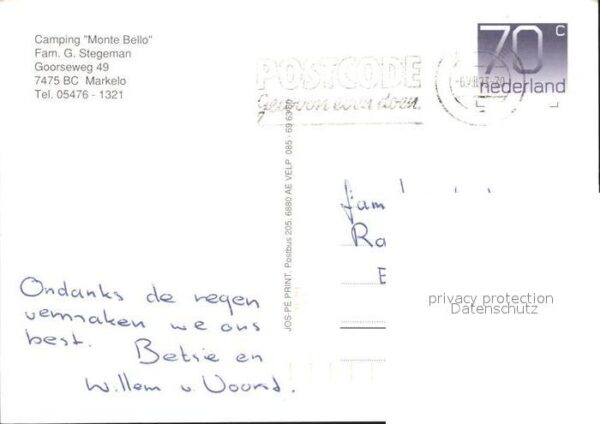 Camping "Monte Bello"
Fam. G. Stegeman
Goorseweg 49
7475 BC Markelo
Tel. 05476 - 1321
70 c
nederland
POSTCODE
gewoon even doen.
JOS-PÉ PRINT. Postbus 205, 6880 AE VELP 085 - 69 63
fam
Ra
Ondanks de regen
vermaken we ons
best. Betsie en
Willem v. Voorst.
privacy protection
Datenschutz